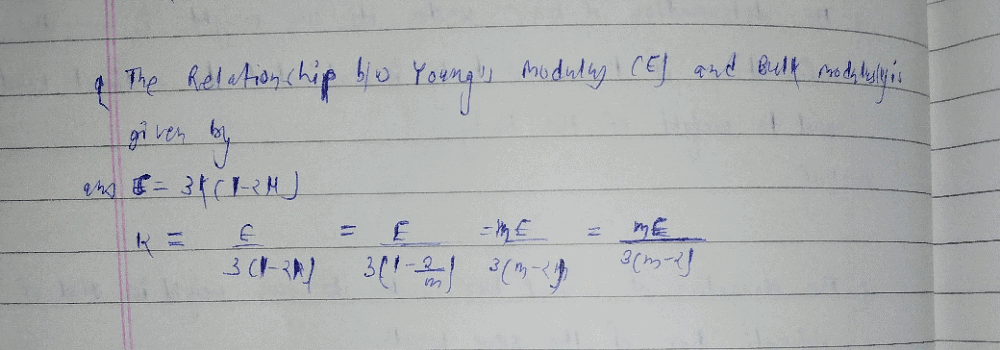 Q The Relationship b/w Young's modulus (E) and Bulk modulus is
given by
ans E = 3K(1-2μ)
K = E/3(1-2μ) = E/3(1-2/m) = mE/3(m-2) = mE/3(m-2)